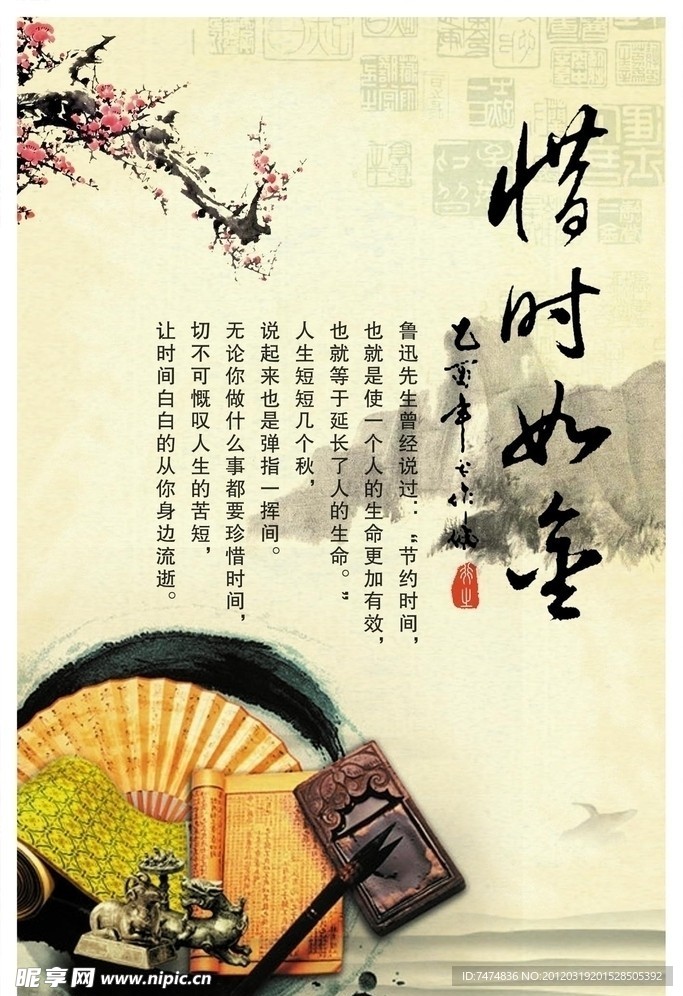 惜时如金
乙酉年
鲁迅先生曾经说过：“节约时间，
也就是使一个人的生命更加有效，
也就等于延长了人的生命。”
人生短短几个秋，
说起来也是弹指一挥间。
无论你做什么事都要珍惜时间，
切不可慨叹人生的苦短，
让时间白白的从你身边流逝。
昵享网 www.nipic.cn
ID:7474836 NO:20120319201528505392